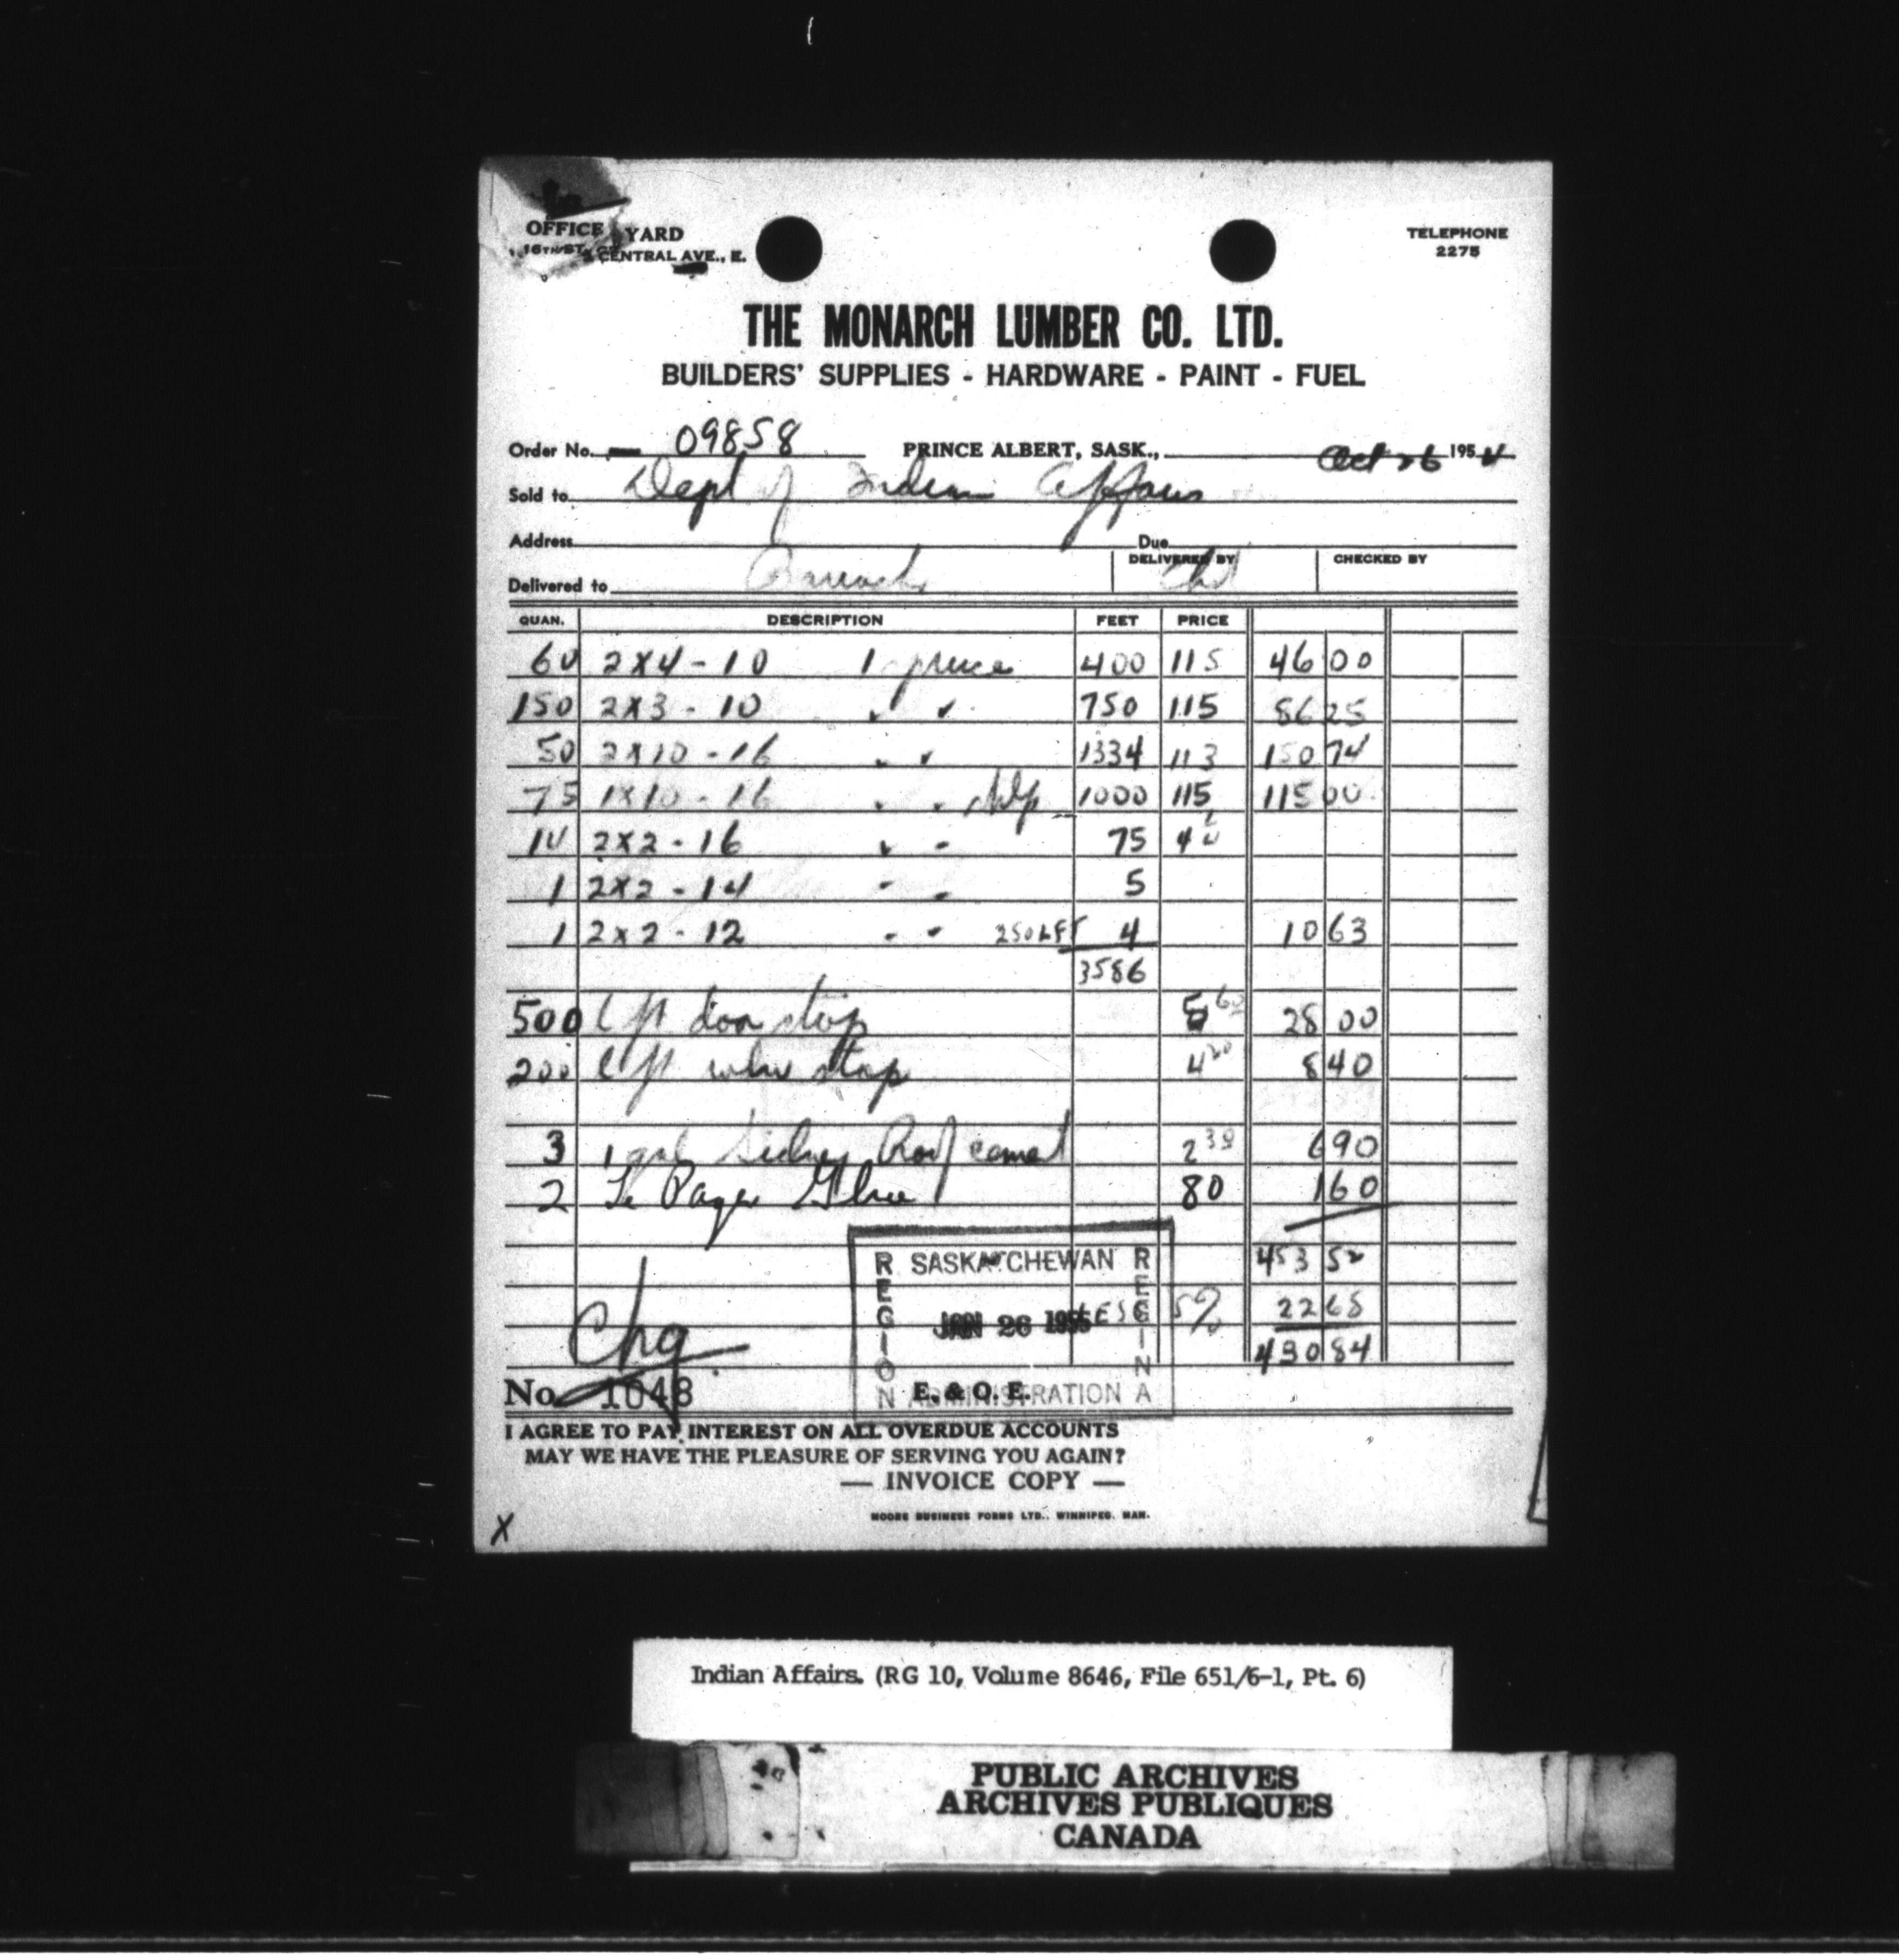 OFFICE & YARD
16TH ST. & CENTRAL AVE., E.
TELEPHONE
2275
THE MONARCH LUMBER CO. LTD.
BUILDERS' SUPPLIES - HARDWARE - PAINT - FUEL
Order No. 09858 PRINCE ALBERT, SASK., Oct 26 1954
Sold to Dept of Indian Affairs
Address Due
Delivered to DELIVERED BY CHECKED BY
QUAN. DESCRIPTION FEET PRICE
60 2x4-10 1 spruce 400 115 46 00
150 2x3-10 " " 750 115 86 25
50 2x10-16 " " 1334 113 150 74
75 1x10-16 " " 1000 115 115 00
14 2x2-16 " " 75 4¼
1 2x2-14 " " 5
1 2x2-12 " " 250 LFT 4 10 63
3586
500 l ft door stop 5 60 28 00
200 l ft stop 4 20 8 40
3 1 gal Sidney Roof cement 2 30 6 90
2 Le Pages Glue 80 1 60
453 52
LESS 5% 22 68
430 84
Chg
SASKATCHEWAN
REGION
REGINA
JAN 26 1955
ADMINISTRATION
No. 1048 E. & O. E.
I AGREE TO PAY INTEREST ON ALL OVERDUE ACCOUNTS
MAY WE HAVE THE PLEASURE OF SERVING YOU AGAIN?
— INVOICE COPY —
MOORE BUSINESS FORMS LTD., WINNIPEG, MAN.
X
Indian Affairs. (RG 10, Volume 8646, File 651/6-1, Pt. 6)
PUBLIC ARCHIVES
ARCHIVES PUBLIQUES
CANADA